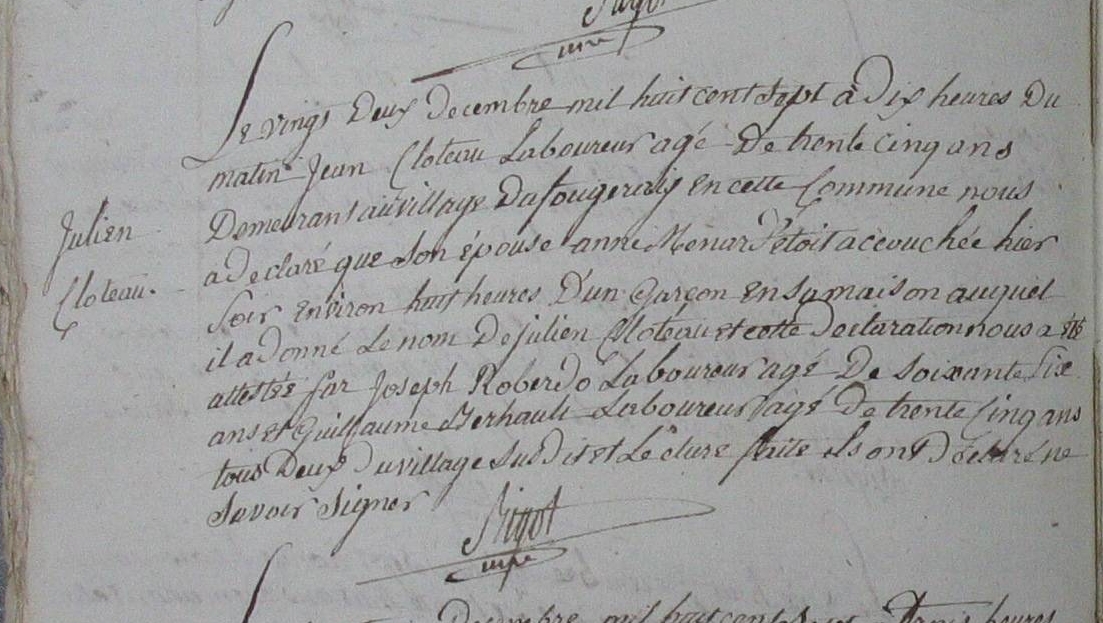 Rigot
Le vingt Deux decembre mil huit cent sept à Dix heures Du
matin Jean Cloteau Laboureur agé De trente cinq ans
Demeurant au village Dafougerais En cette Commune nous
a declaré que Son épouse anne Menard étoit accouchée hier
Soir Environ huit heures D'un Garçon En sa maison auquel
il a donné Le nom De julien Cloteau et cette Declaration nous a été
attestée par Joseph Roberdo Laboureur agé De soixante Six
ans et Guillaume Laboureur agé De trente Cinq ans
tous Deux Du village Susdit et Lecture faite ils ont Déclaré ne
Savoir Signer
Julien
Cloteau.
Rigot
Decembre mil huit cent Sept a Trois heures